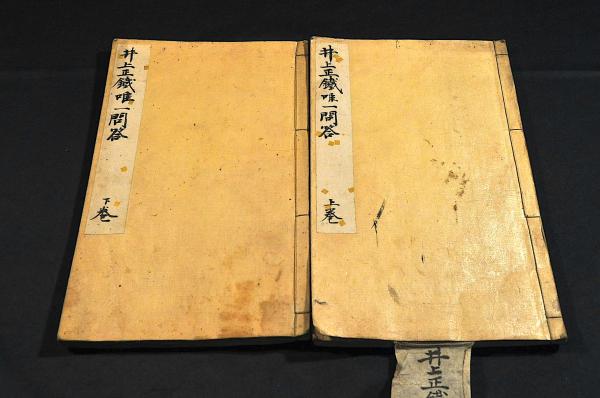 井上正鐵唯一問答
上巻
井上正鐵唯一問答
下巻
井上正